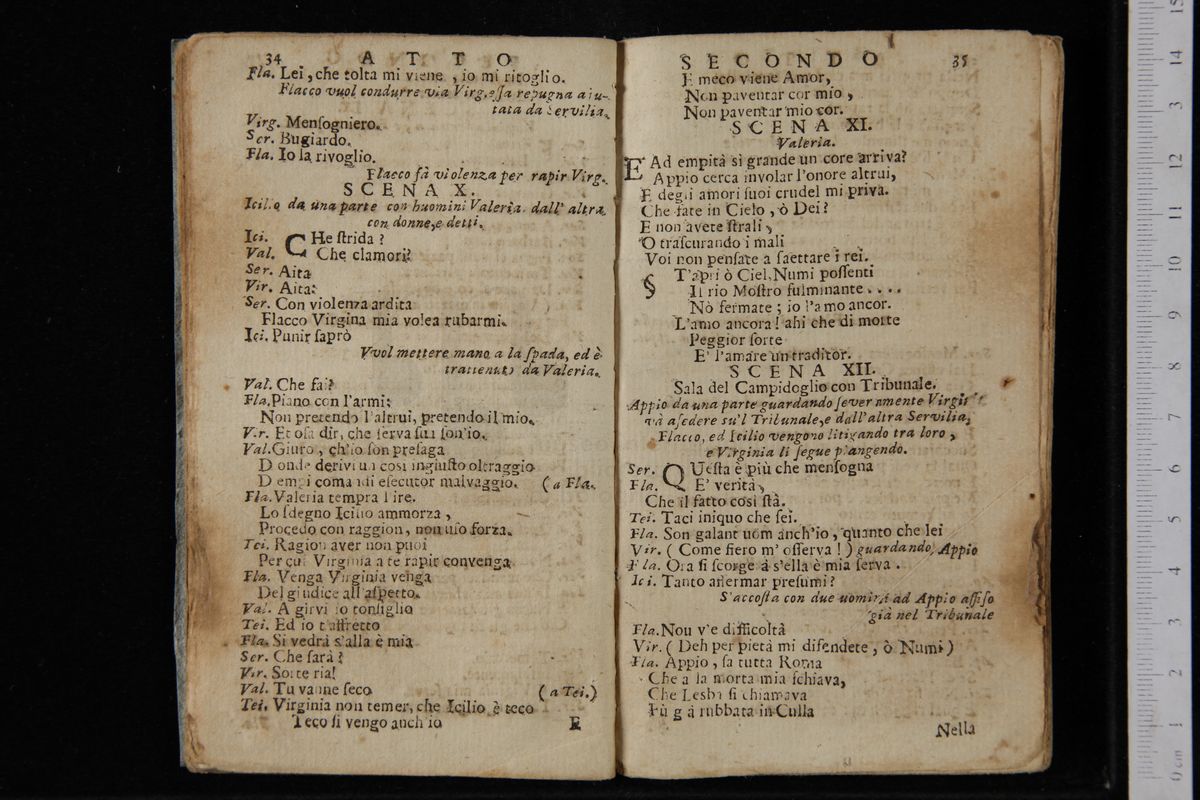 34 ATTO
Fla. Lei, che tolta mi viene, io mi ritoglio.
Flacco vuol condurre via Virg. essa repugna aiu-
tata da Servilia.
Virg. Menſogniero.
Ser. Bugiardo.
Fla. Io la rivoglio.
Flacco fà violenza per rapir Virg.
SCENA X.
Icilio da una parte con huomini Valeria dall' altra
con donne, e detti.
Ici. CHe ſtrida?
Val. Che clamori?
Ser. Aita
Vir. Aita:
Ser. Con violenza ardita
Flacco Virgina mia volea rubarmi.
Ici. Punir ſaprò
Vuol mettere mano a la ſpada, ed è
trattenuto da Valeria.
Val. Che fai?
Fla. Piano con l'armi;
Non pretendo l'altrui, pretendo il mio.
Vir. Et oſa dir, che ſerva ſua ſon'io.
Val. Giuro, ch'io ſon preſaga
D onde derivi un cosi ingiuſto oltraggio
D empi comandi eſecutor malvaggio. (a Fla.
Fla. Valeria tempra l ire.
Lo ſdegno Icilio ammorza,
Procedo con raggion, non uſo forza.
Tei. Ragion aver non puoi
Per cui Virginia a te rapir convenga
Fla. Venga Virginia venga
Del giudice all'aſpetto.
Val. A girvi io conſiglio
Tei. Ed io t'affretto
Fla. Si vedrà s'alla è mia
Ser. Che ſarà?
Vir. Sorte ria!
Val. Tu vanne ſeco (a Tei.)
Tei. Virginia non temer, che Icilio è teco
Teco ſi vengo anch io E
SECONDO 35
E meco viene Amor,
Non paventar cor mio,
Non paventar mio cor.
SCENA XI.
Valeria.
EAd empità sì grande un core arriva?
Appio cerca involar l'onore altrui,
E degli amori ſuoi crudel mi priva.
Che fate in Cielo, ò Dei?
E non avete ſtrali,
O traſcurando i mali
Voi non penſate a ſaettare i rei.
S T'apri ò Ciel, Numi poſſenti
Il rio Moſtro fulminante....
Nò fermate; io l'amo ancor.
L'amo ancora! ahi che di morte
Peggior ſorte
E' l'amare un traditor.
SCENA XII.
Sala del Campidoglio con Tribunale.
Appio da una parte guardando ſeveramente Virgin
và aſedere su'l Tribunale, e dall'altra Servilia,
Flacco, ed Icilio vengono litigando tra loro,
e Virginia li ſegue piangendo.
Ser. QUeſta è più che menſogna
Fla. E' verità,
Che il fatto così ſtà.
Tei. Taci iniquo che ſei.
Fla. Son galant uom anch'io, quanto che lei
Vir. (Come fiero m' oſſerva!) guardando, Appio
Fla. Ora ſi ſcorge á s'ella è mia ſerva.
Ici. Tanto afferrmar preſumi?
S'accoſta con due uomini ad Appio aſſiſo
già nel Tribunale
Fla. Nou v'e difficoltà
Vir. (Deh per pietà mi difendete, ò Numi)
Fla. Appio, ſa tutta Roma
Che a la morta mia ſchiava,
Che Lesba ſi chiamava
Fù g à rubbata in Culla
Nella